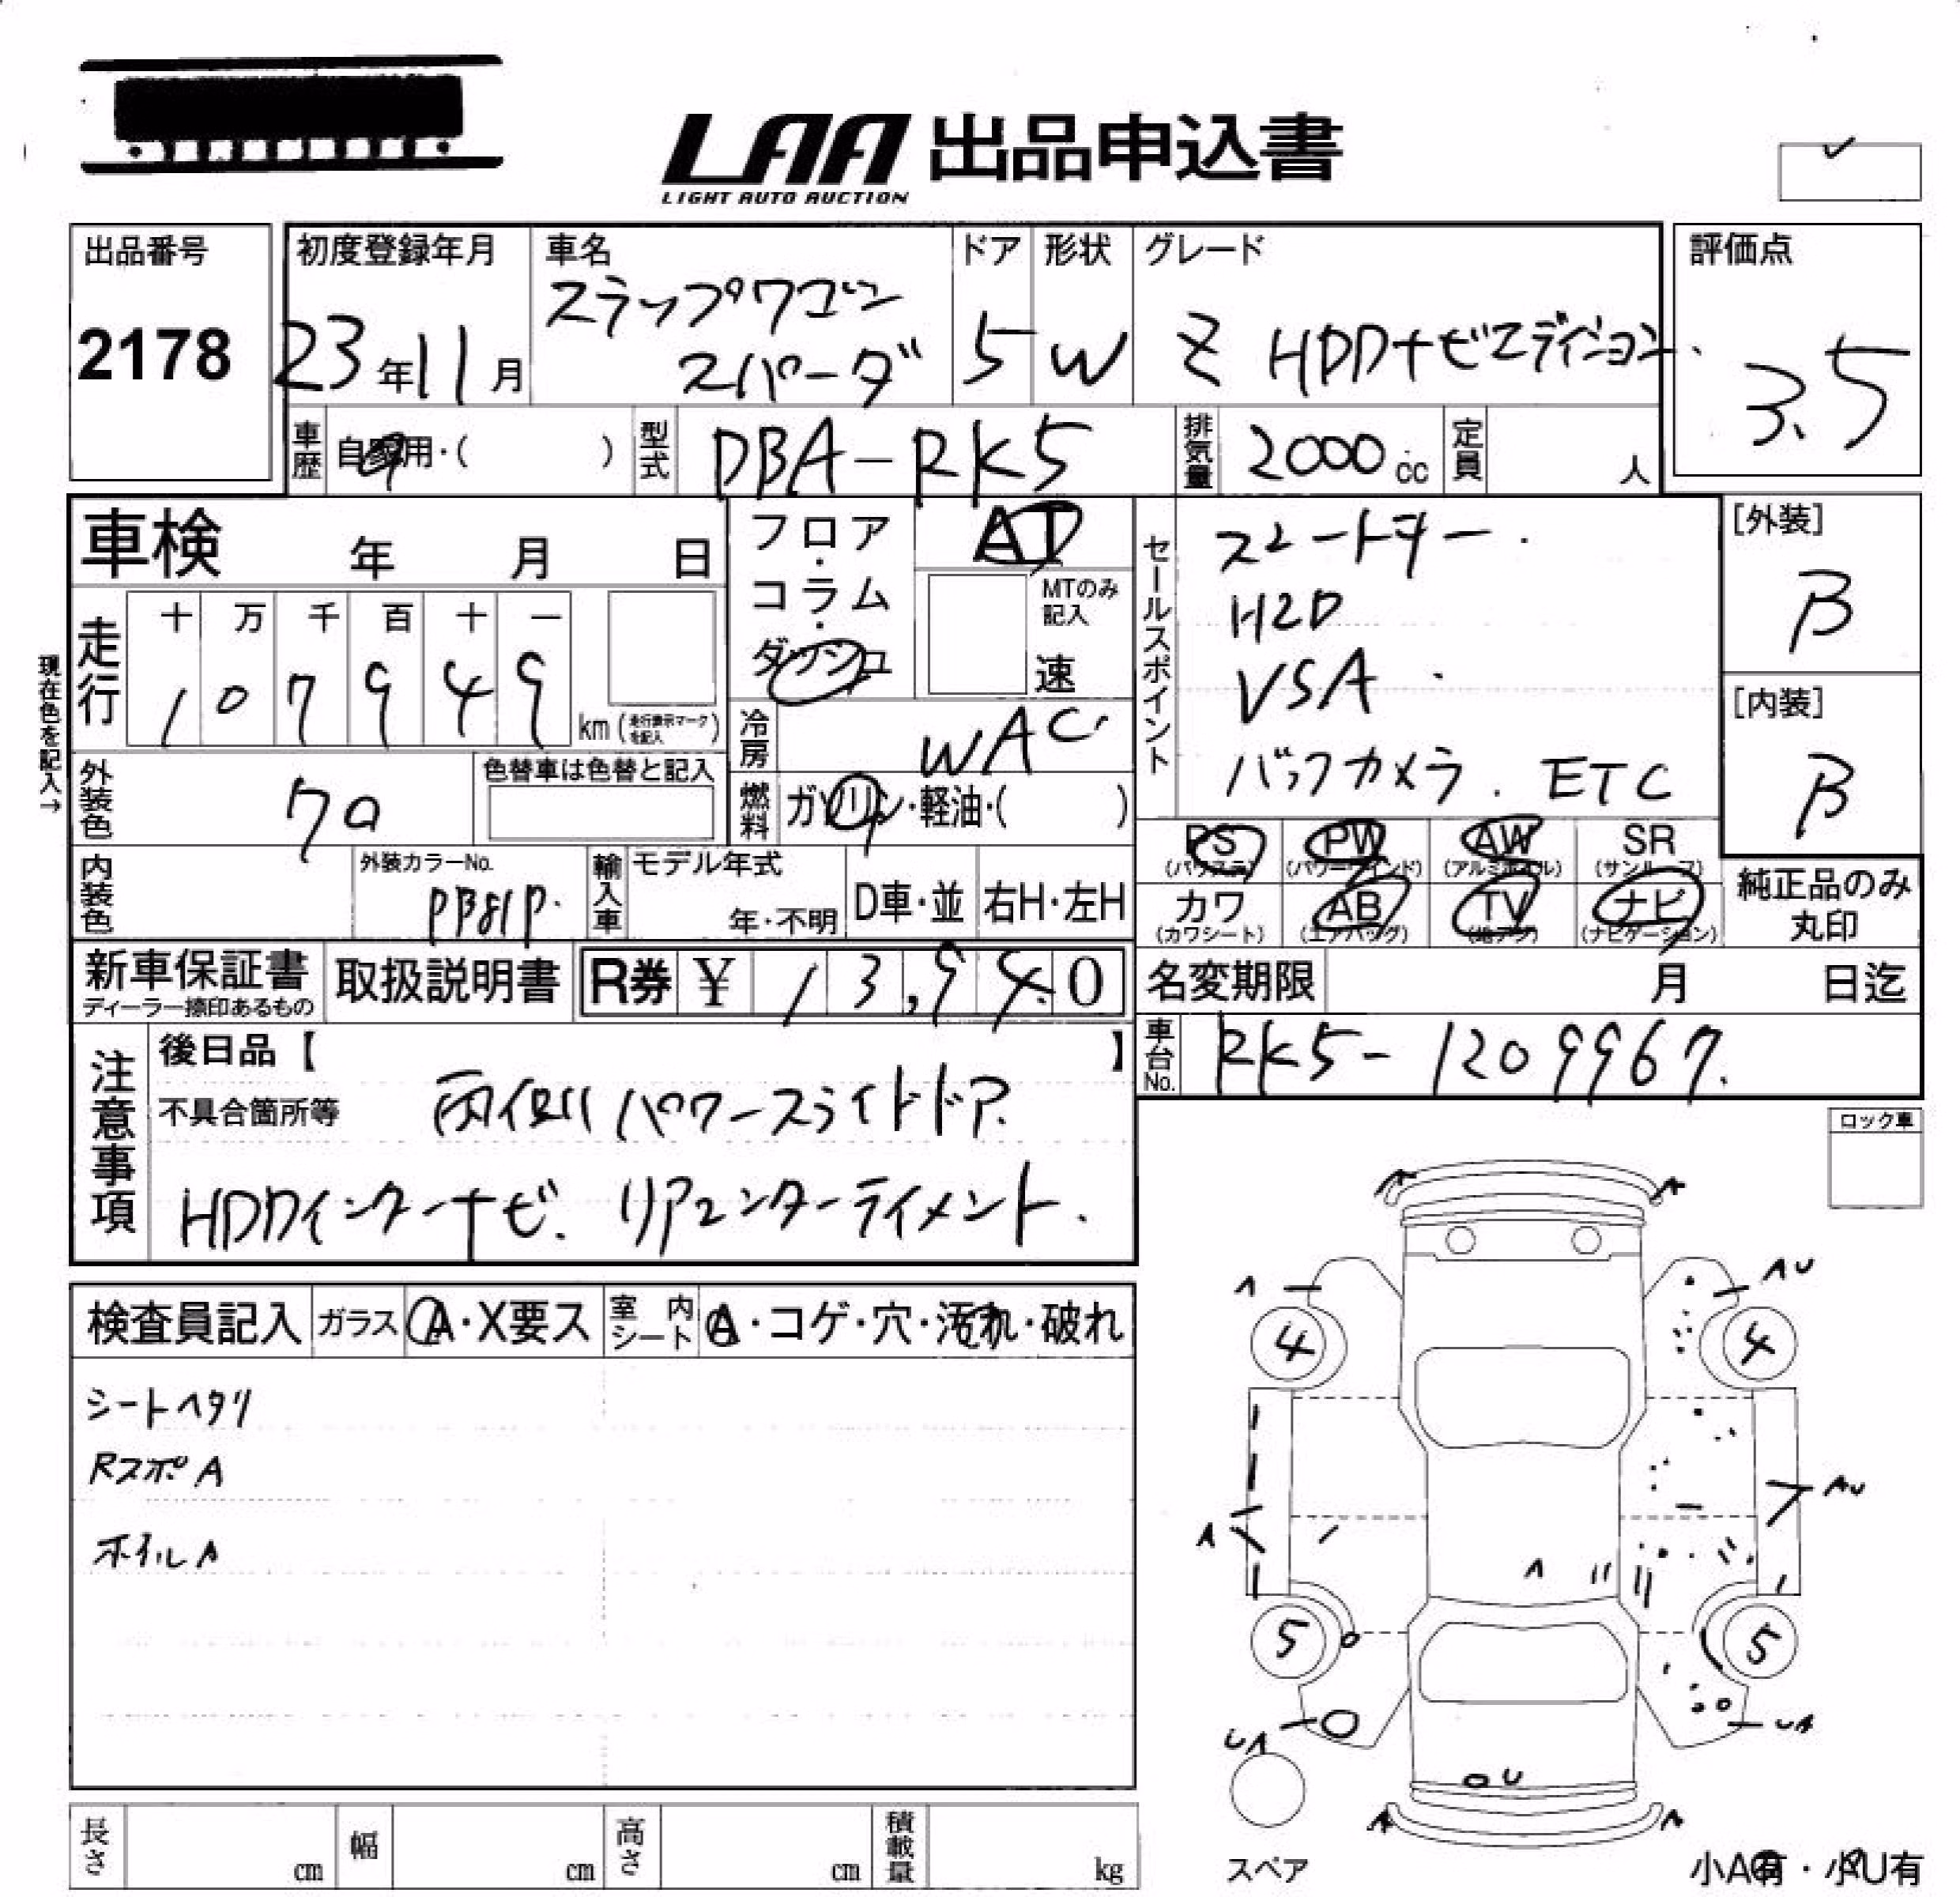 LAA 出品申込書
LIGHT AUTO AUCTION
出品番号
2178
初度登録年月
23年11月
車名
ステップワゴン
スパーダ
ドア
5
形状
W
グレード
Z HDDナビエディション
評価点
3.5
車歴
自家用・( )
型式
DBA-RK5
排気量
2000 cc
定員
人
車検 年 月 日
走行
十 万 千 百 十 一
1 0 7 9 4 9
km (走行表示マークを記入)
現在色を記入→
外装色
クロ
色替車は色替と記入
内装色
外装カラーNo.
PB81P.
フロア・コラム・ダッシュ
AT
MTのみ記入
速
冷房
WAC
燃料
ガソリン・軽油・( )
輸入車
モデル年式
年・不明
D車・並
右H・左H
セールスポイント
スマートキー
HID
VSA
バックカメラ. ETC
[外装]
B
[内装]
B
PS (パワステ)
PW (パワーウインド)
AW (アルミホイル)
SR (サンルーフ)
カワ (カワシート)
AB (エアバッグ)
TV (地デジ)
ナビ (ナビゲーション)
純正品のみ
丸印
新車保証書
ディーラー捺印あるもの
取扱説明書
R券 ¥ 13,940
名変期限 月 日迄
車台No.
RK5-1209967.
注意事項
後日品【 】
不具合箇所等
両側パワースライドドア.
HDDインターナビ. リアエンターテイメント.
ロック車
検査員記入
ガラス
A・X要ス
室内シート
A・コゲ・穴・汚れ・破れ
シートヘタリ
RスポA
ホイルA
A U
A
4 4
AU
A
A
5 5
UA
UA
U
スペア
小A有・小U有
長さ cm
幅 cm
高さ cm
積載量 kg